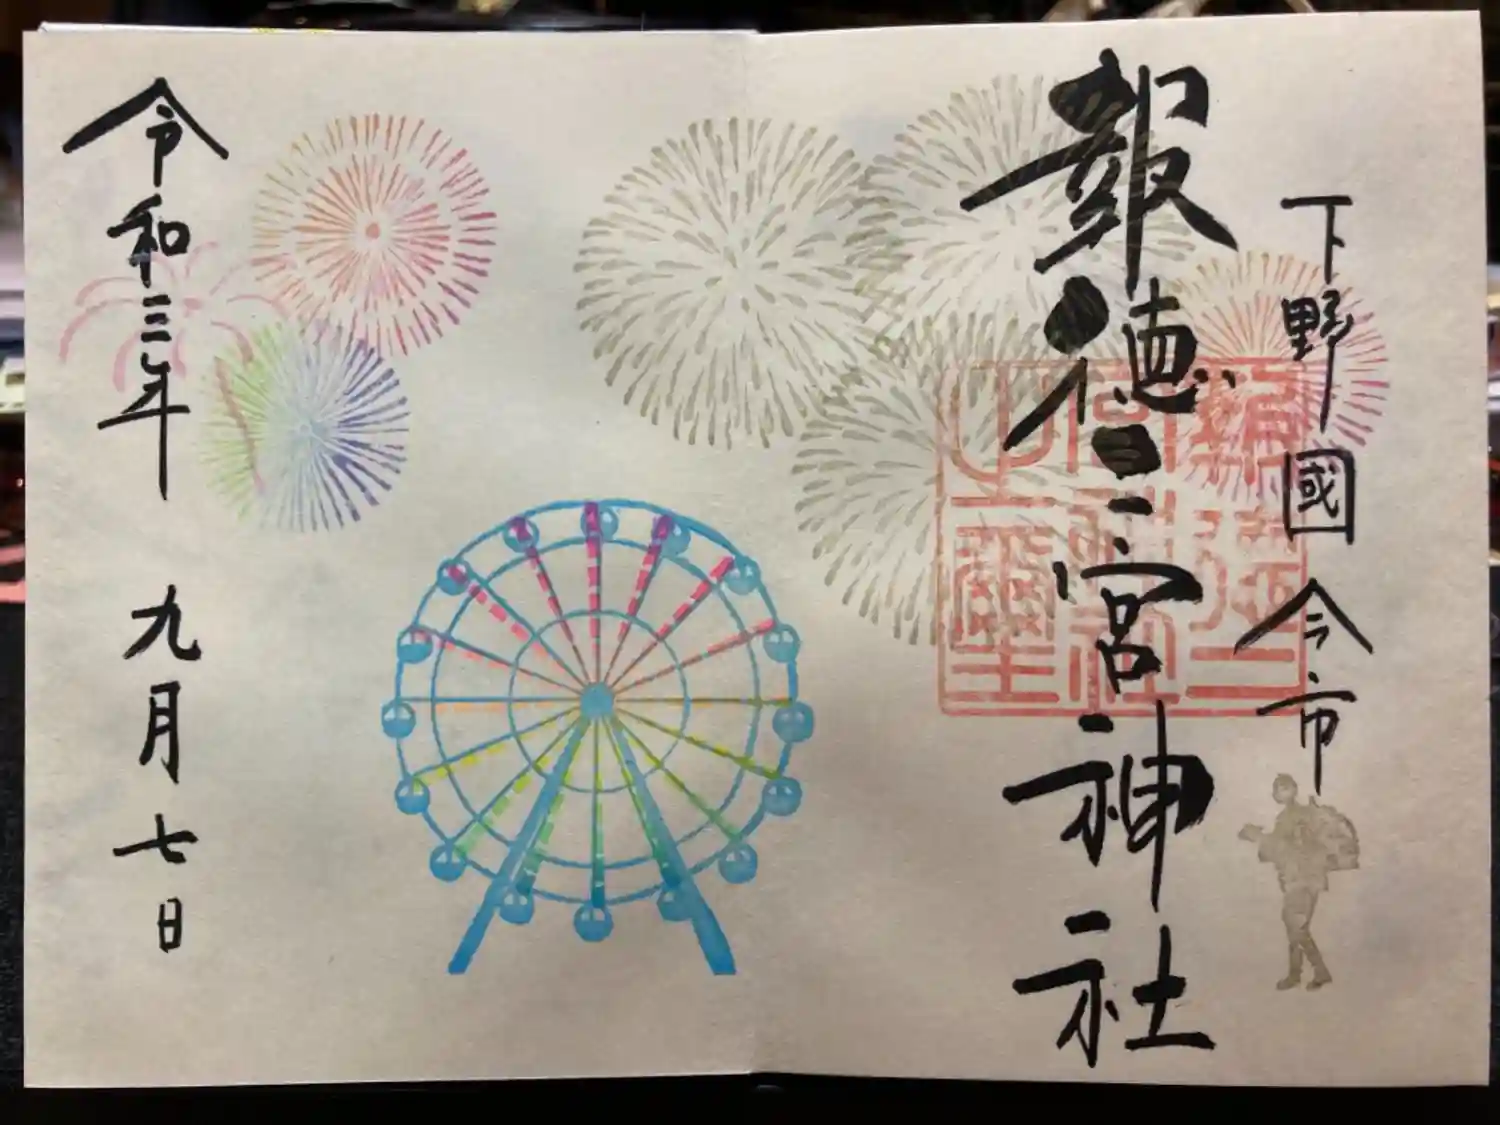 下野國 今市
報徳二宮神社
報徳二宮神社之璽
令和三年 九月七日